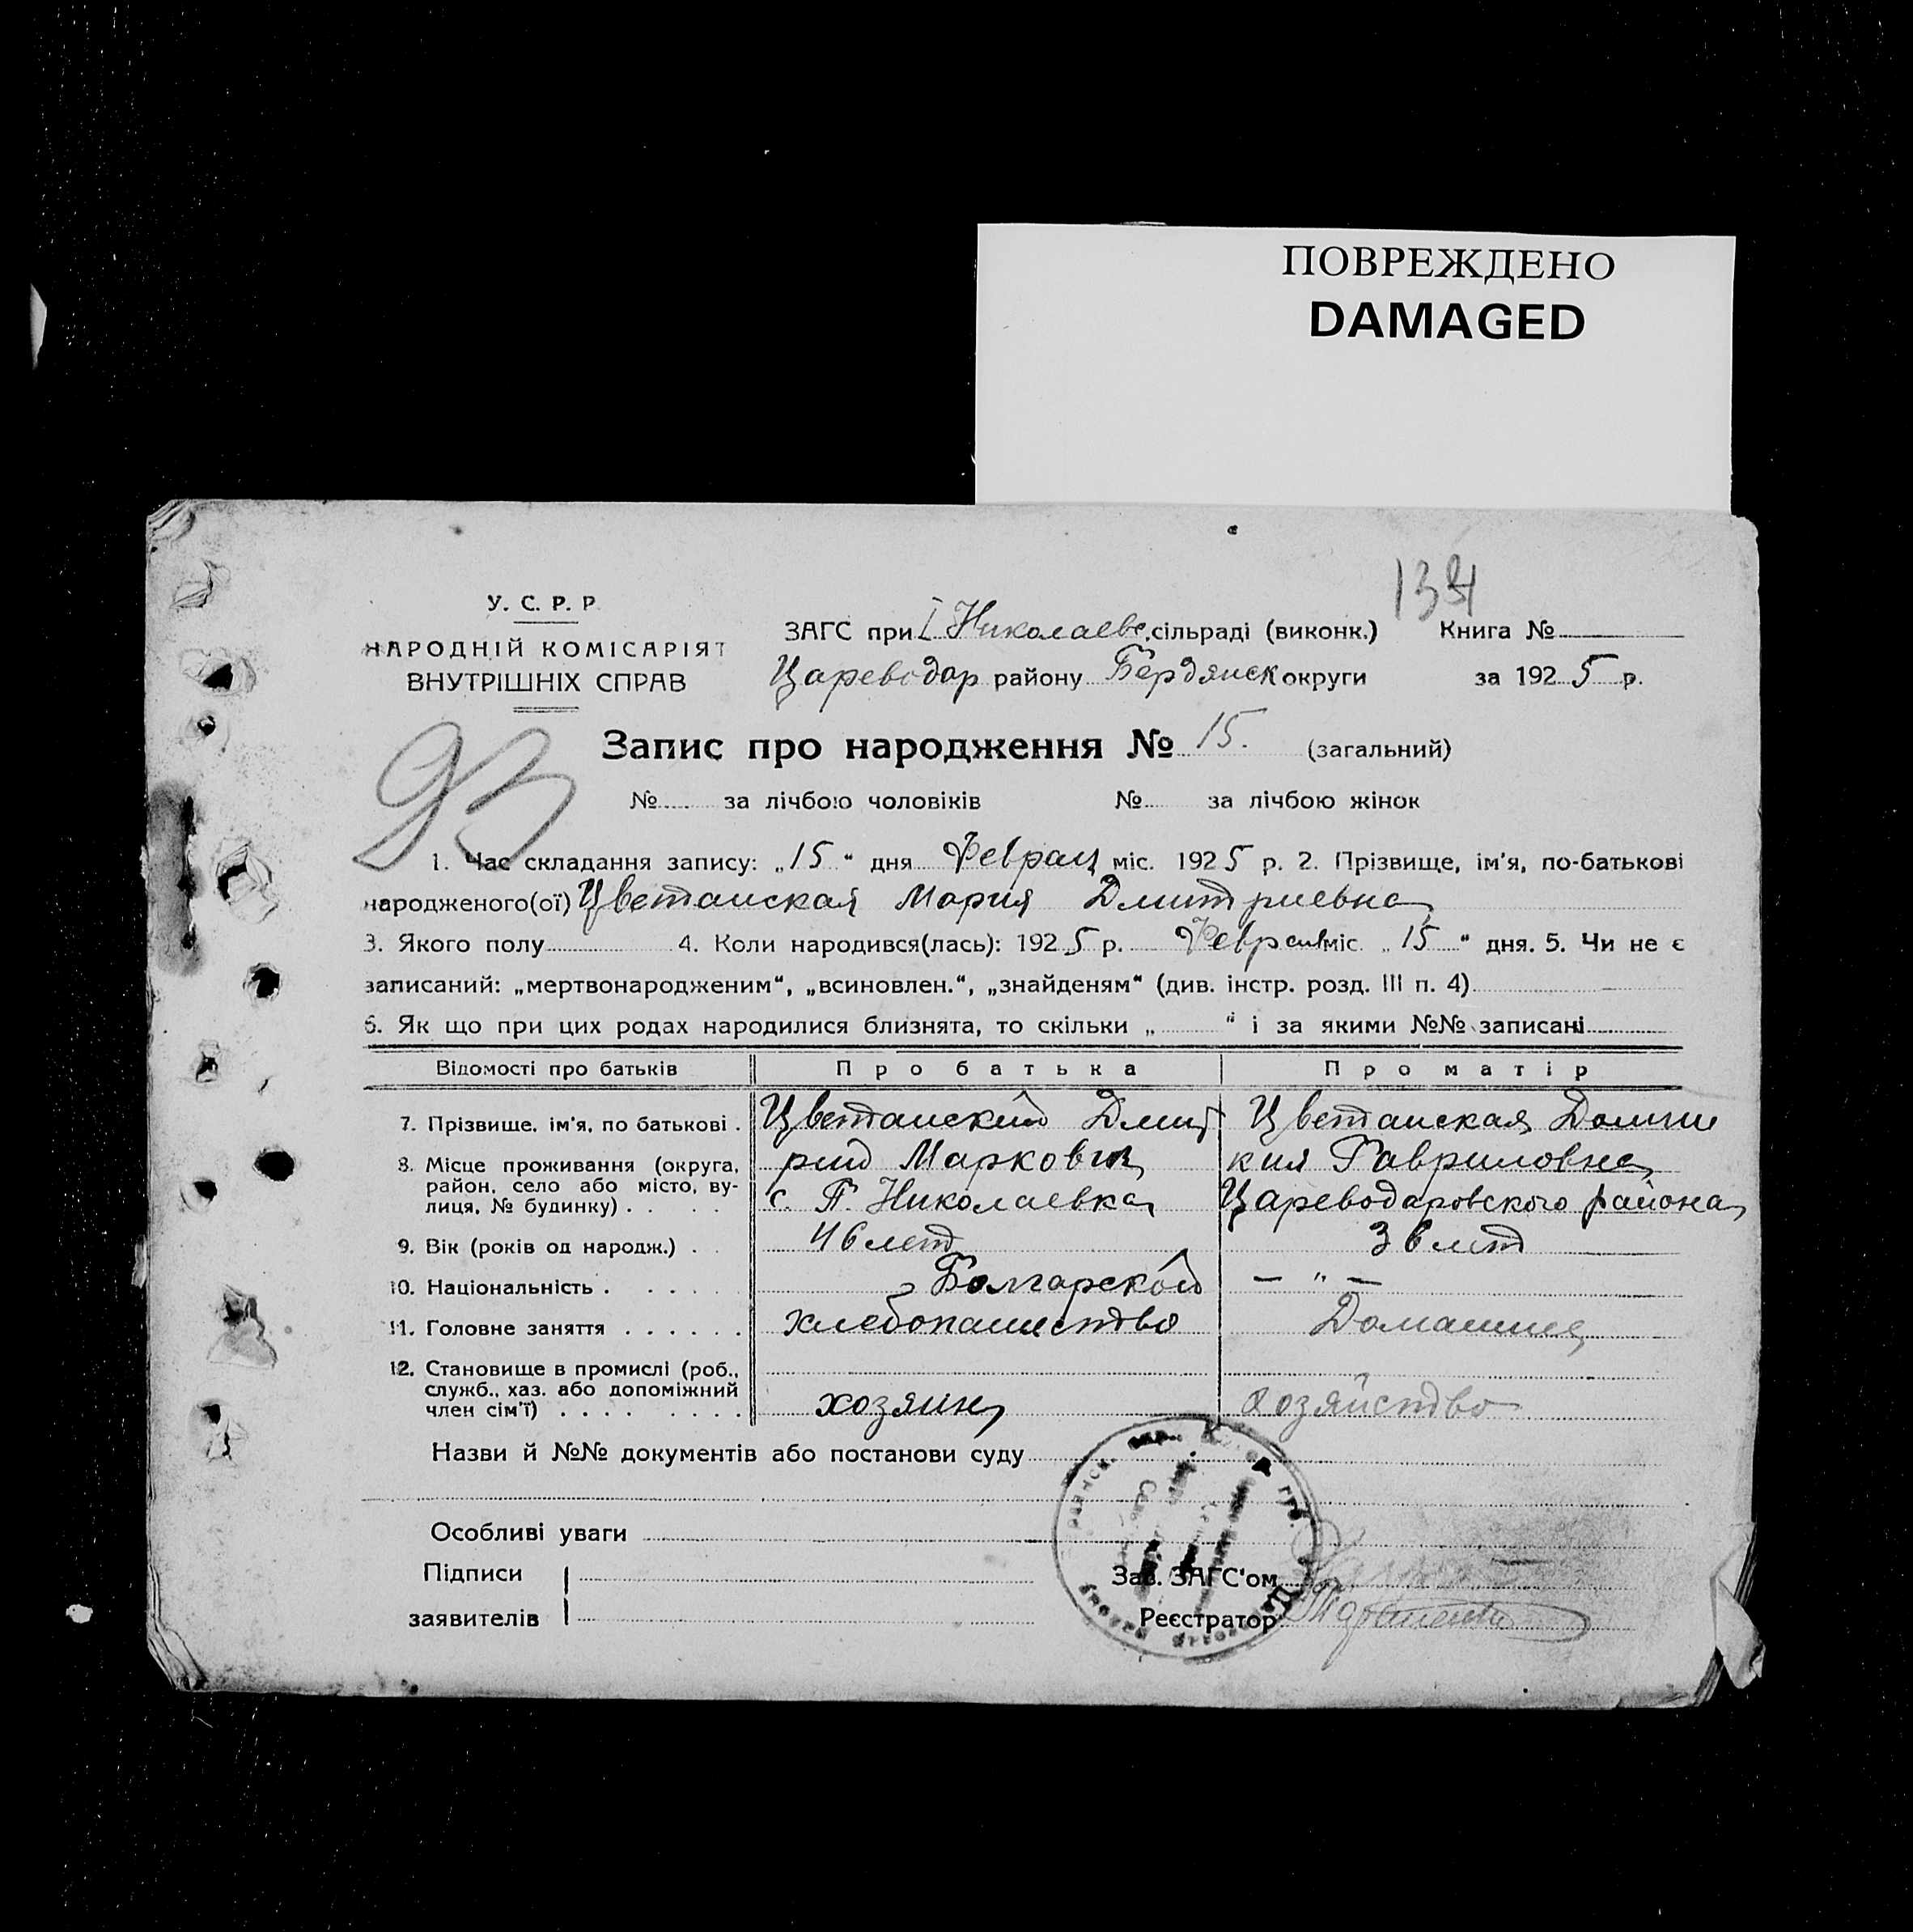 ПОВРЕЖДЕНО
DAMAGED
134
У. С. Р. Р.
НАРОДНІЙ КОМІСАРІЯТ
ВНУТРІШНІХ СПРАВ
ЗАГС при І Николаевс. сільраді (виконк.) Книга №
Цареводар району Бердянск округи за 1925 р.
93
Запис про народження № 15. (загальний)
№ за лічбою чоловіків № за лічбою жінок
1. Час складання запису: „15“ дня Феврал міс. 1925 р. 2. Прізвище, ім'я, по-батькові
народженого(ої) Цветанская Мария Дмитриевна
3. Якого полу 4. Коли народився(лась): 1925 р. Феврал міс. „15“ дня. 5. Чи не є
записаний: „мертвонародженим“, „всиновлен.“, „знайденям“ (див. інстр. розд. III п. 4)
6. Як що при цих родах народилися близнята, то скільки „ “ і за якими №№ записані
Відомості про батьків Про батька Про матір
7. Прізвище, ім'я, по батькові . Цветанский Дмит Цветанская Домни
8. Місце проживання (округа, рий Маркович кия Гавриловна
район, село або місто, ву-
лиця, № будинку) . . . . с. П. Николаевка Цареводаровского района
9. Вік (років од народж.) . . 46 лет 36 лет
10. Національність . . . . . . Болгарской — " —
11. Головне заняття . . . . . . хлебопашество Домашнее
12. Становище в промислі (роб.,
служб., хаз. або допоміжний
член сім'ї) . . . . . . . . . хозяин хозяйство
Назви й №№ документів або постанови суду
Особливі уваги
Підписи
заявителів
Зав. ЗАГС'ом
Реєстратор